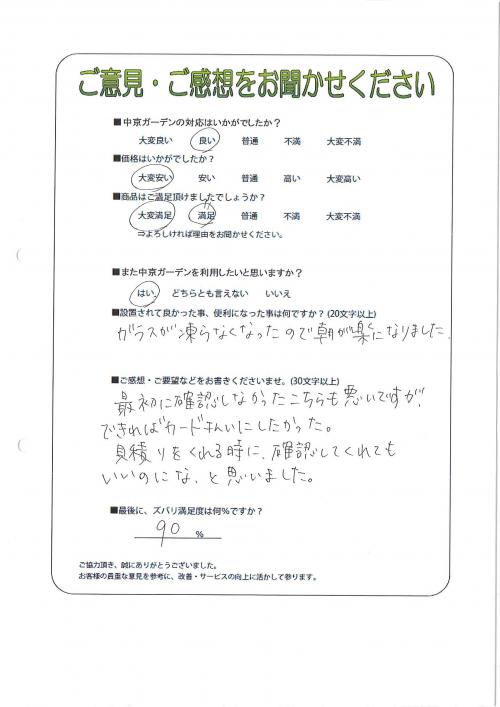 ご意見・ご感想をお聞かせください
■中京ガーデンの対応はいかがでしたか？
大変良い 良い 普通 不満 大変不満
■価格はいかがでしたか？
大変安い 安い 普通 高い 大変高い
■商品はご満足頂けましたでしょうか？
大変満足 満足 普通 不満 大変不満
⇒よろしければ理由をお聞かせください。
■また中京ガーデンを利用したいと思いますか？
はい どちらとも言えない いいえ
■設置されて良かった事、便利になった事は何ですか？（20文字以上）
ガラスが凍らなくなったので朝が楽になりました。
■ご感想・ご要望などをお書きくださいませ。（30文字以上）
最初に確認しなかったこちらも悪いですが、
できればカード払いにしたかった。
見積りをくれる時に、確認してくれても
いいのにな、と思いました。
■最後に、ズバリ満足度は何％ですか？
90 %
ご協力頂き、誠にありがとうございました。
お客様の貴重な意見を参考に、改善・サービスの向上に活かして参ります。